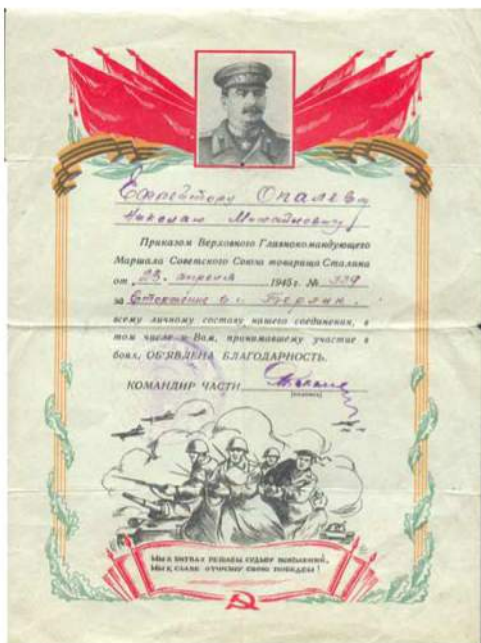 Ефрейтору Опалеву
Николаю Михайловичу
Приказом Верховного Главнокомандующего
Маршала Советского Союза товарища Сталина
от 23 апреля 1945 г. № 339
за вторжение в г. Берлин
всему личному составу нашего соединения, в
том числе и Вам, принимавшему участие в
боях, ОБ'ЯВЛЕНА БЛАГОДАРНОСТЬ.
КОМАНДИР ЧАСТИ
(подпись)
МЫ В БИТВАХ РЕШАЕМ СУДЬБУ ПОКОЛЕНИЙ,
МЫ К СЛАВЕ ОТЧИЗНУ СВОЮ ПОВЕДЕМ!